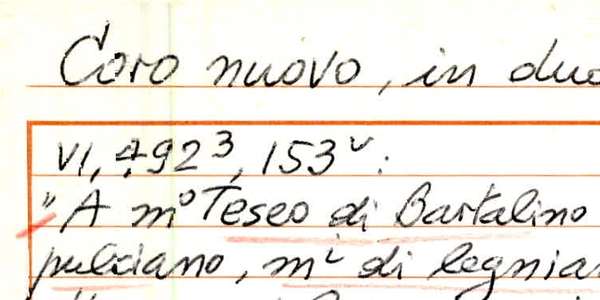 Coro nuovo, in duo
VI, 792³, 153ᵛ:
"A m° Teseo di Bartalino
pulciano, mⁱ di legnia